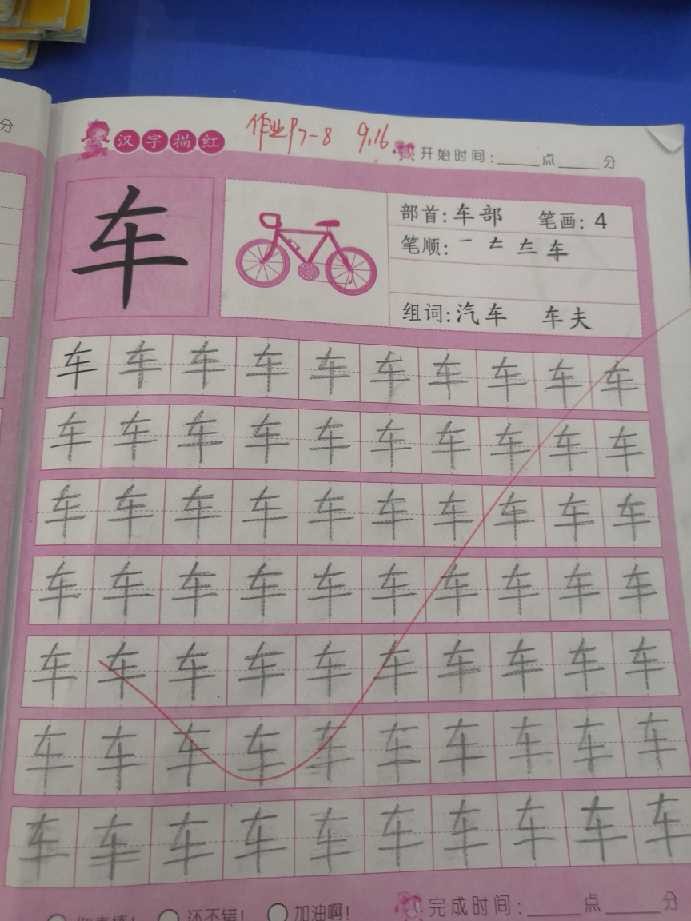 分
汉字描红 作业P7-8 9.16 开始时间:____点____分
车
部首:车部 笔画:4
笔顺:一 𠂉 二 车
组词:汽车 车夫
车 车 车 车 车 车 车 车 车 车
车 车 车 车 车 车 车 车 车 车
车 车 车 车 车 车 车 车 车 车
车 车 车 车 车 车 车 车 车 车
车 车 车 车 车 车 车 车 车 车
车 车 车 车 车 车 车 车 车 车
车 车 车 车 车 车 车 车 车 车
还不错! 加油啊! 完成时间:____点____分